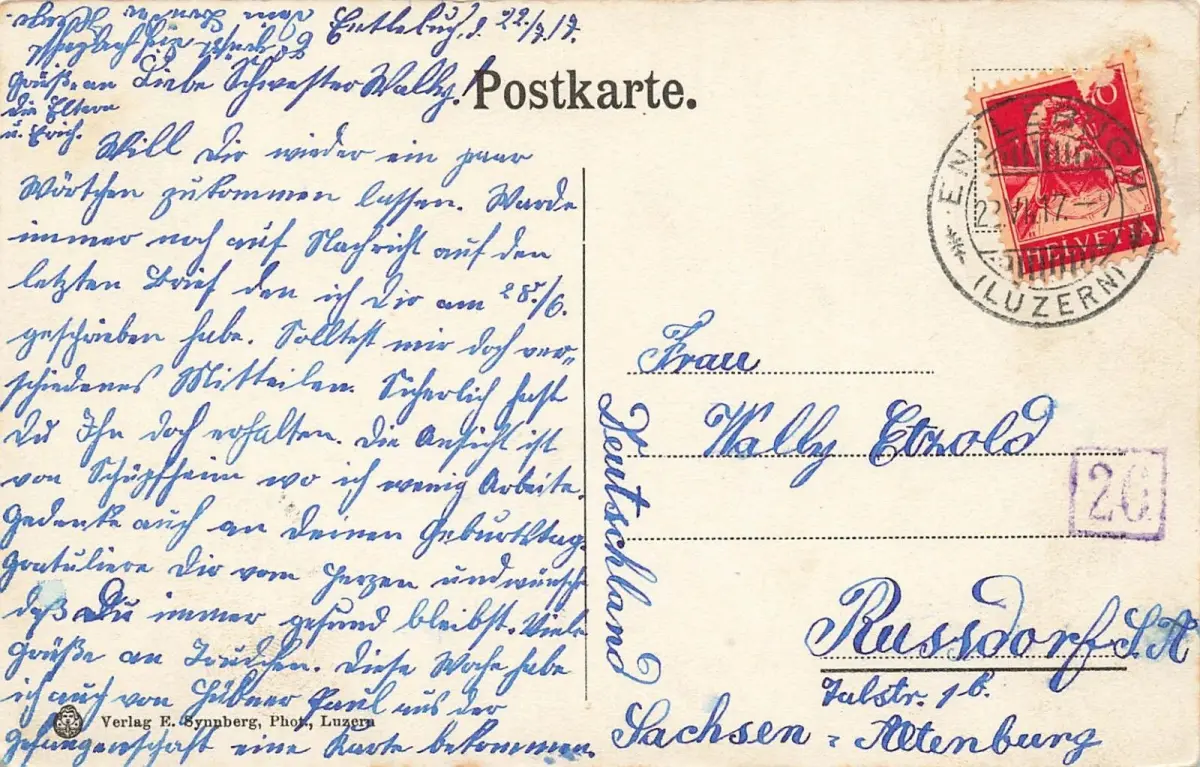 Entlebuch, d. 22./7.17.
Liebe Schwester Wally!
Grüße an
die Eltern
u. Erich.
Postkarte.
Will Dir wieder ein paar
Wörtchen zukommen lassen. Warde
immer noch auf Nachricht auf den
letzten Brief den ich Dir am 25./6.
geschrieben habe. Solltest mir doch ver-
schiedenes Mitteilen. Sicherlich hast
Du Ihn doch erhalten. Die Ansicht ist
von Schüpfheim wo ich wenig Arbeite.
Gedenke auch an Deinen Geburtstag.
Gratuliere Dir vom Herzen und wünsche
daß Du immer gesund bleibst. Viele
Grüße an Trudchen. Diese Woche habe
ich auch von Hübner Paul aus der
Gefangenschaft eine Karte bekommen.
Verlag E. Synnberg, Phot., Luzern
ENTLEBUCH
22.VII.17.-9
(LUZERN)
HELVETIA
10
Frau
Wally Etzold
Deutschland
26
Russdorf S.A
Talstr. 1b.
Sachsen-Altenburg